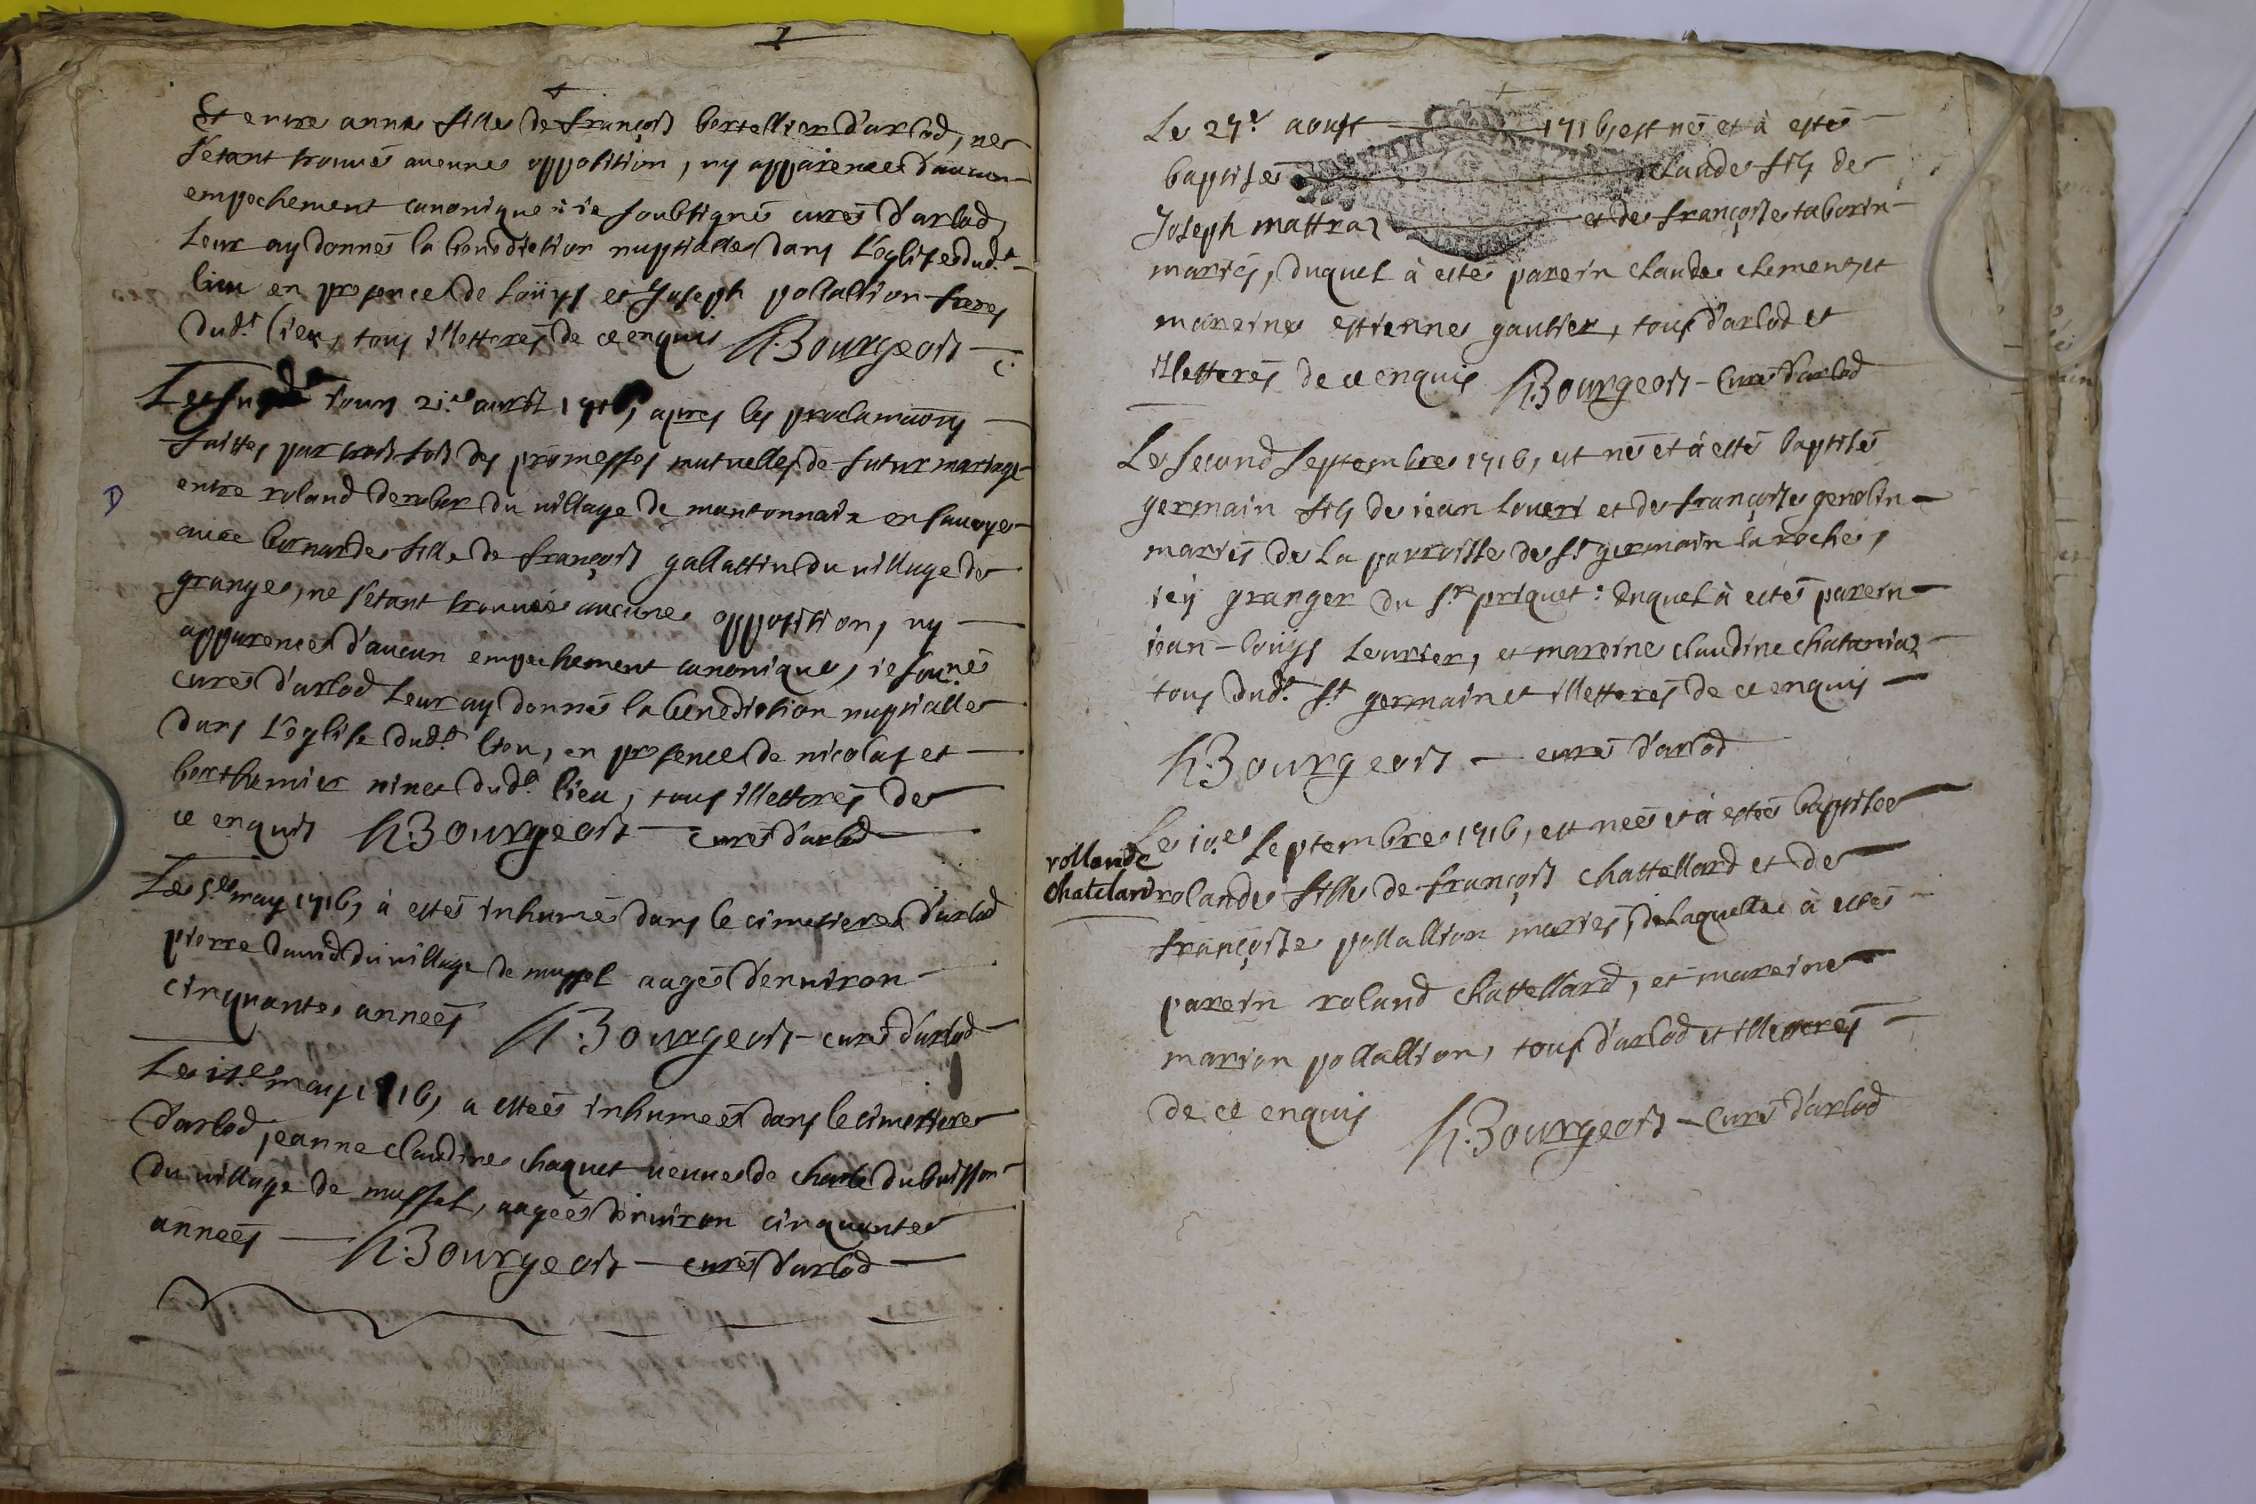 Et entre anna fille de françois bertellier d'arlod, ne
s'etant trouvés aucune opposition, ny apparence d'aucun
empechement canonique ie soubsigné curé d'arlod
leur ay donnés la benediction nuptialle dans l'eglise dud.t
lieu en presence de loüys et Joseph pollallion freres
dud.t lieu, tous illetterés de ce enquis h. Bourgeois
Le jour 21.e avril 1716, apres les proclamaõns
faittes par trois fois des promesses mutuelles de futur mariage
entre roland derobar du village de mantonnaix en savoye
avec bernarde fille de françois gallattin du village de
grange, ne s'etant trouvée aucune opposition, ny
apparence d'aucun empechement canonique, ie sou.né
curé d'arlod leur ay donnés la benediction nuptialle
dans l'eglise dud.t lieu, en presence de nicolas et
berthemier ninet dud.t lieu, tous illetterés de
ce enquis h. Bourgeois curé d'arlod
Le 5.e may 1716, à estés inhumé dans le cimetiere d'arlod
pierre david du village de mussel aagés d'environ
cinquante années h. Bourgeois curé d'arlod
Le 15.e may 1716, a estées inhumeés dans le cimettiere
d'arlod, jeanne claudine chaquet veuve de charle dubuisson
du village de mussel, aageés d'environ cinquante
années h. Bourgeois curé d'arlod
Le 27.e aoust 1716, est né et à estés
baptisés claude fils de
Joseph mattraz et de françoise taborin
mariés, duquel à estés parein claude clement, et
mareine estienne gautier, tous d'arlod et
illetterés de ce enquis h. Bourgeois curé d'arlod
Le second septembre 1716, est né et à estés baptisés
germain fils de iean louert et de françoise genolin
mariés de la parroisse de s.t germain la roche,
icy granger du s.r priquet: duquel à estés parein
iean-loüys leurier, et mareine claudine chataniaz
tous dud.t s.t germain et illetterés de ce enquis
h. Bourgeois curé d'arlod
rollande
chatelard
Le 10.e septembre 1716, est neé et à estés baptisée
rolande fille de françois chattellard et de
françoise pollallion mariés, de laquelle à estés
parein roland chattellard, et mareine
marion pollallion, tous d'arlod et illetterés
de ce enquis h. Bourgeois curé d'arlod